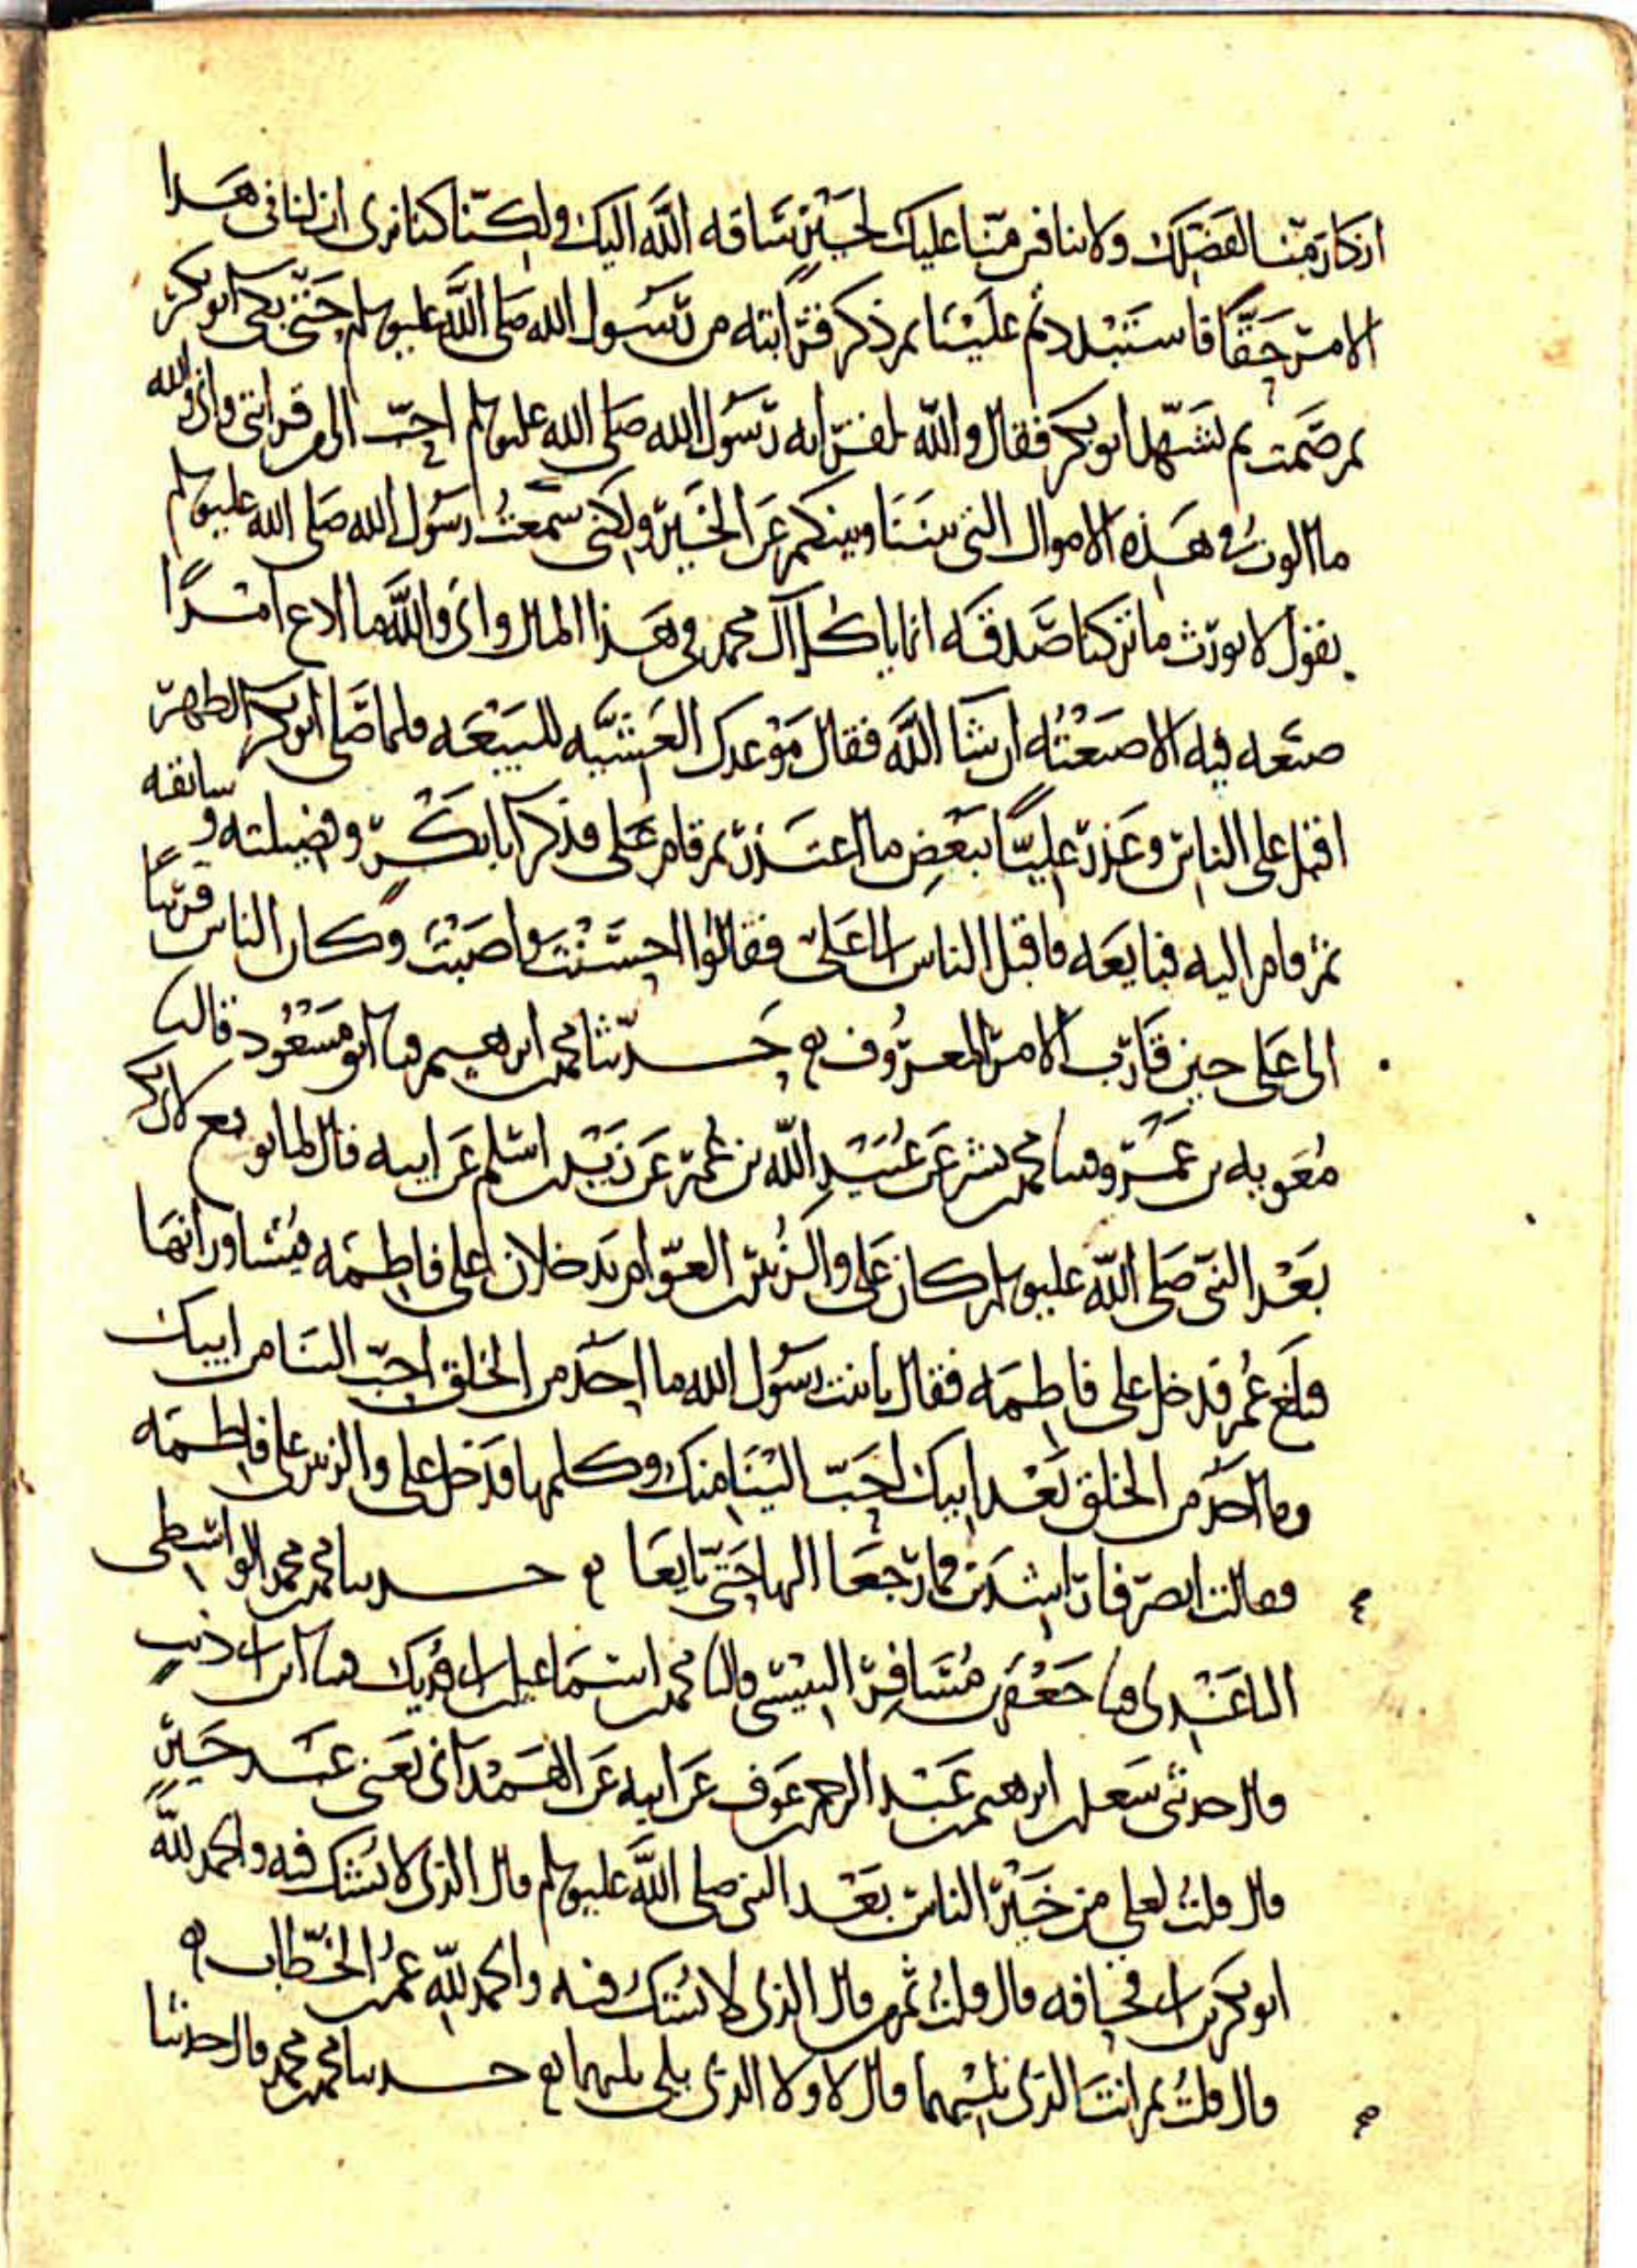 ان كان منا لفضلك ولا ننافر منا عليك لخير ساقه الله اليك ولكنا كنا نرى ان لنا في هذا
الامر حقا فاستبددتم علينا ثم ذكر قرابته من رسول الله صلى الله عليه وسلم حتى بكى ابو بكر
ثم صمت ثم تشهد ابو بكر فقال والله لقرابه رسول الله صلى الله عليه وسلم احب الي من قرابتي واني والله
ما الوت في هذه الاموال التي بيننا وبينكم عن الخير ولكني سمعت رسول الله صلى الله عليه وسلم
يقول لا نورث ما تركنا صدقه انما ياكل آل محمد في هذا المال واني والله ما ادع امرا
صنعه فيه الا صنعته ان شا الله فقال موعدك العشيه للبيعه فلما صلى ابو بكر الظهر
اقبل على الناس وعذر عليا ببعض ما اعتذر ثم قام علي فذكر ابا بكر وفضيلته وسابقته
ثم قام اليه فبايعه فاقبل الناس الى علي فقالوا احسنت واصبت وكان الناس قريبا
الى علي حين قارب الامر المعروف حدثنا محمد بن ابرهيم قثنا ابو مسعود قال انا
معويه بن عمرو قثنا محمد بن بشر عن عبيد الله بن عمر عن زيد بن اسلم عن ابيه قال لما بويع لابي بكر
بعد النبي صلى الله عليه وسلم كان علي والزبير بن العوام يدخلان على فاطمه فيشاورانها
فبلغ عمر فدخل على فاطمه فقال يا بنت رسول الله ما احد من الخلق احب الينا من ابيك
وما احد من الخلق بعد ابيك احب الينا منك وكلمها فدخل علي والزبير على فاطمه
فقالت انصرفا راشدين فما رجعا اليها حتى بايعا حدثنا محمد بن محمد الواسطي
الباغندي قثنا جعفر بن مسافر التنيسي قال نا محمد بن اسماعيل بن ابي فديك قثنا ابن ابي ذيب
قال حدثني سعد بن ابرهيم بن عبد الرحمن بن عوف عن ابيه عن الهمداني يعني عبد خير
قال قلت لعلي من خير الناس بعد النبي صلى الله عليه وسلم قال الذي لا نشك فيه والحمد لله
ابو بكر بن ابي قحافه قال قلت ثم من قال الذي لا نشك فيه والحمد لله عمر بن الخطاب
قال قلت ثم انت الذي تليهما قال لا ولا الذي يلي يليهما حدثنا محمد بن محمد قال حدثنا